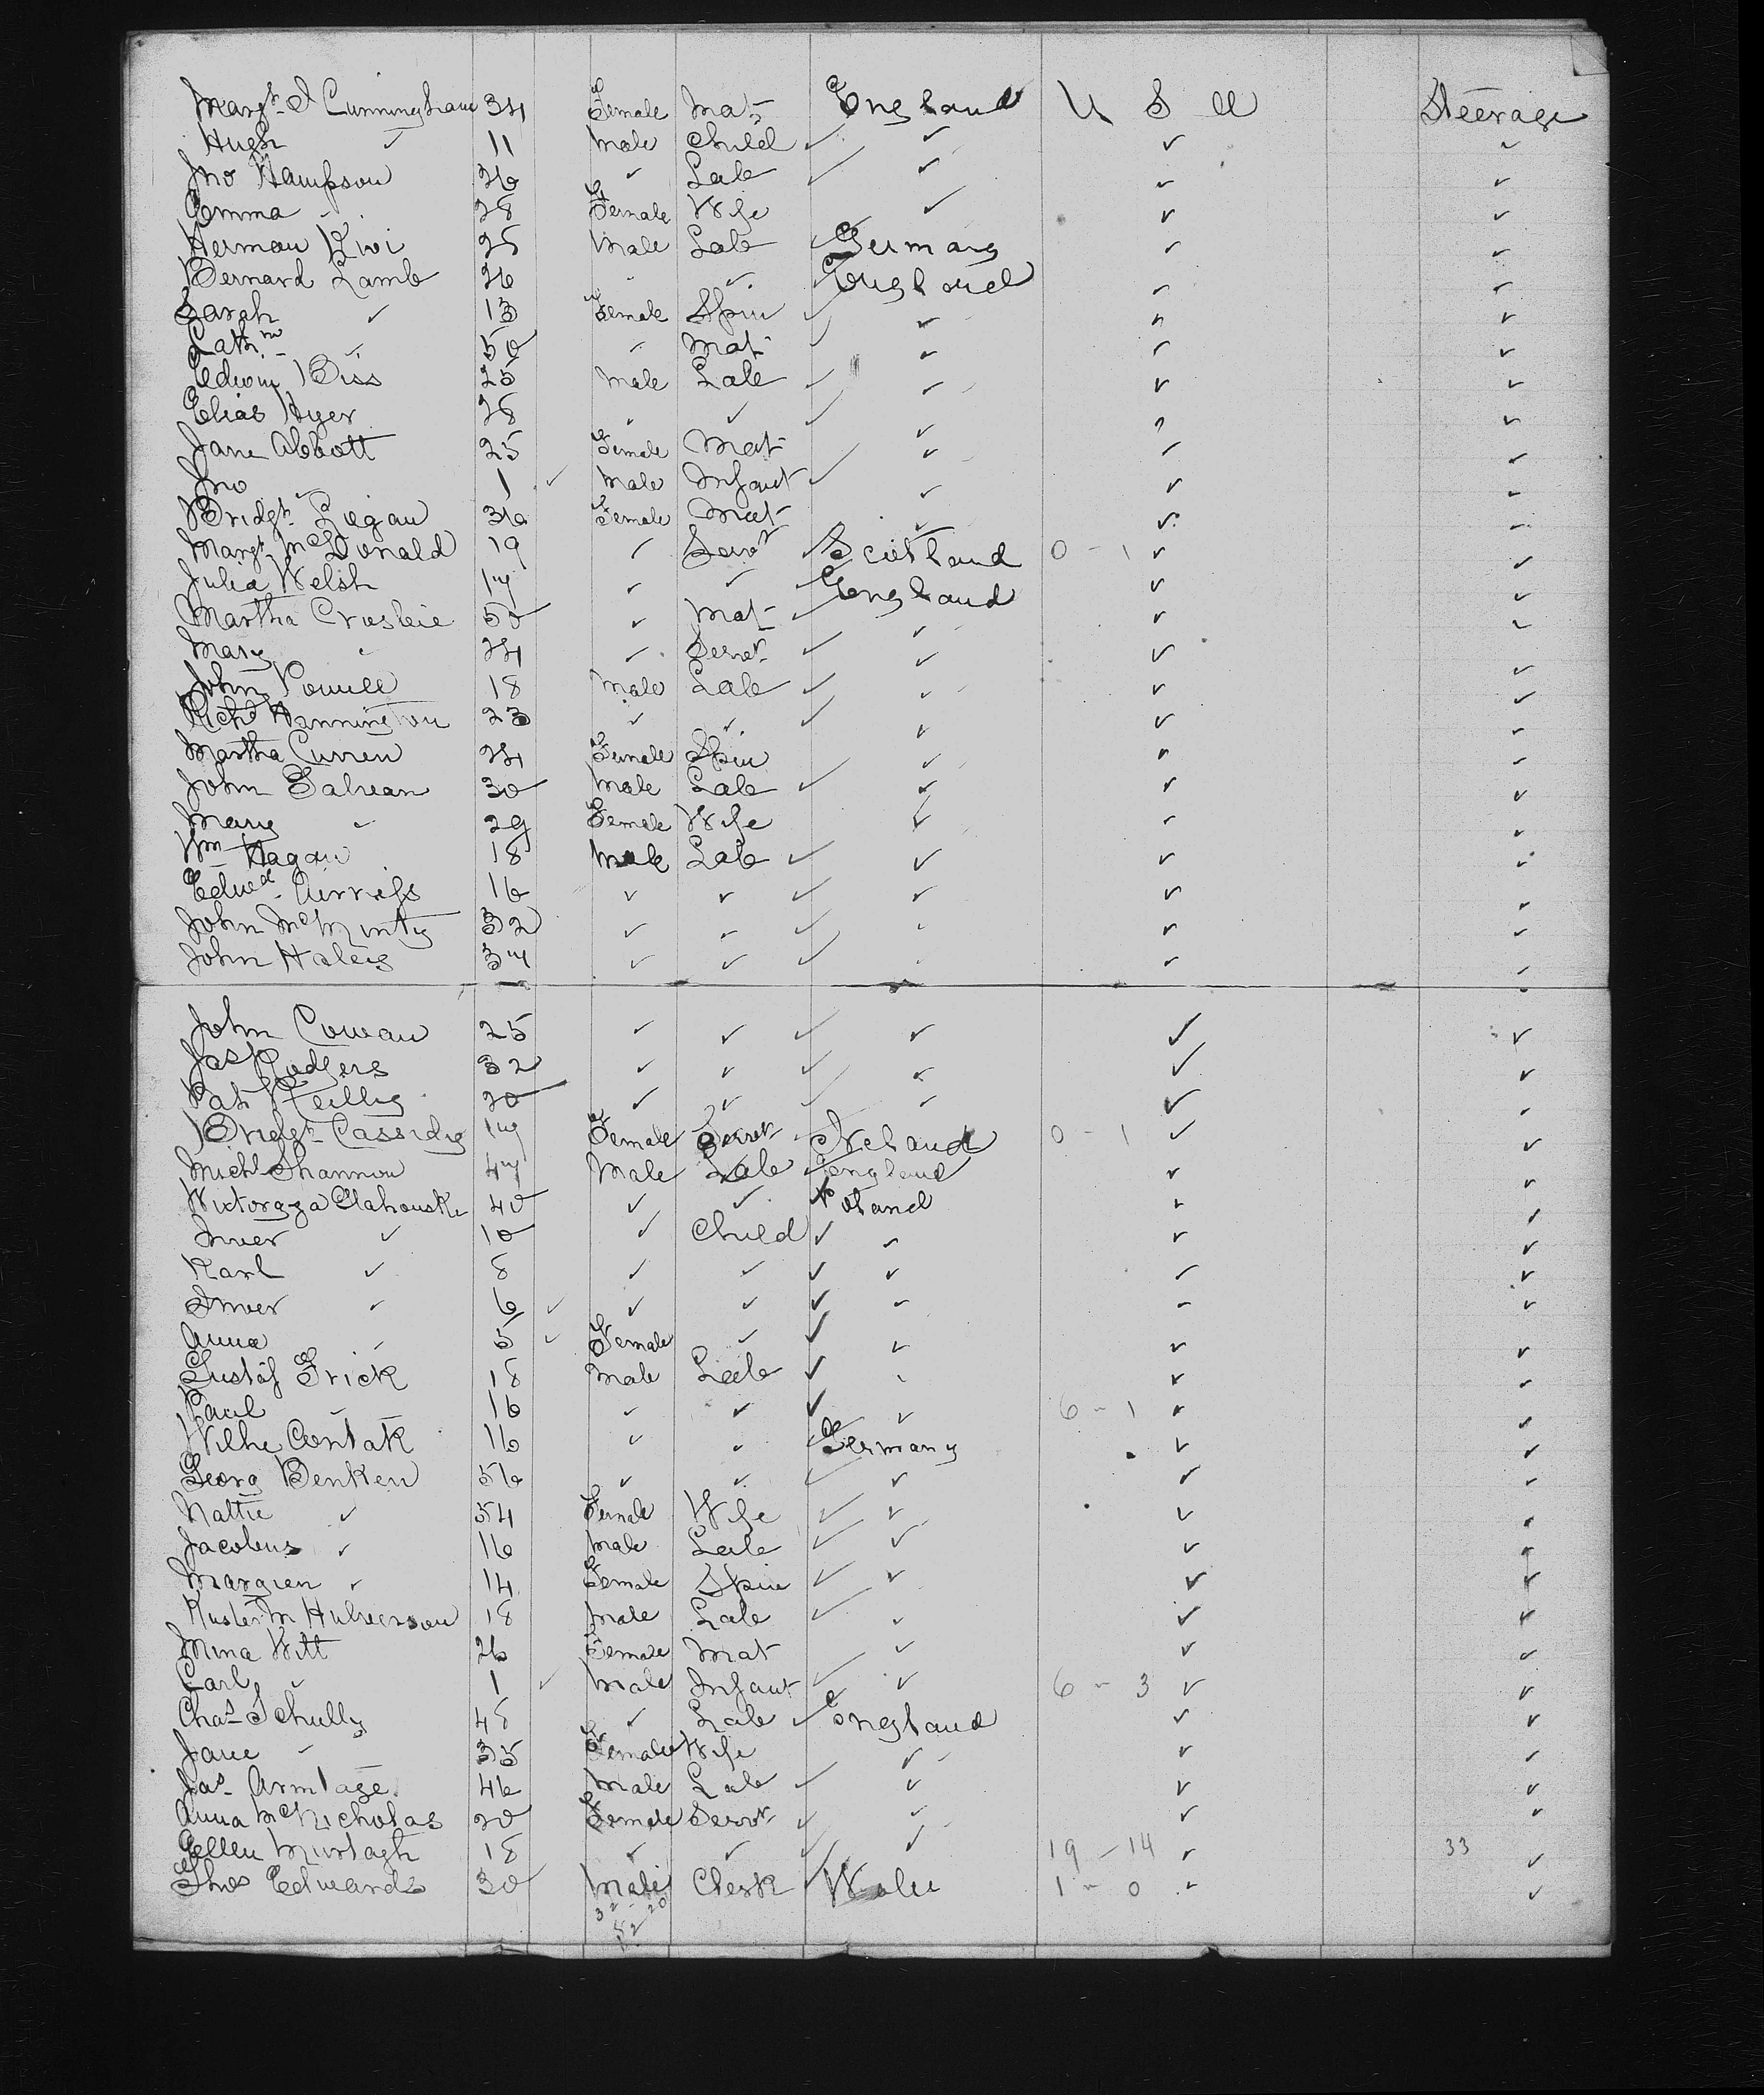 Margt J Cunningham 34 Female Mat England U S A Steerage
Hugh ✓ 11 Male Child ✓ ✓ ✓ ✓
Jno Hampson 36 ✓ Lab ✓ ✓ ✓ ✓
Emma ✓ 28 Female Wife ✓ ✓ ✓
Herman 25 Male Lab ✓ Germany ✓ ✓
Bernard Lamb 26 ✓ ✓ ✓ England ✓ ✓
Sarah ✓ 13 Female Spin ✓ ✓ ✓ ✓
Cathn ✓ 50 ✓ Mat ✓ ✓ ✓ ✓
Edwin Biss 25 Male Lab ✓ ✓ ✓ ✓
Elias Hyer 28 ✓ ✓ ✓ ✓ ✓ ✓
Jane Abbott 25 Female Mat ✓ ✓ ✓
Jno ✓ 1 ✓ Male Infant ✓ ✓ ✓ ✓
Bridgt 36 Female Mat ✓ ✓ ✓
Margt McDonald 19 ✓ Servt ✓ Scotland 0 - 1 ✓ ✓
Julia Welsh 17 ✓ ✓ ✓ England ✓ ✓
Martha Crosbie 50 ✓ Mat ✓ ✓ ✓ ✓
Mary ✓ 24 ✓ Servt ✓ ✓ ✓ ✓
John Powell 18 Male Lab ✓ ✓ ✓ ✓
Richd Hannington 23 ✓ ✓ ✓ ✓ ✓ ✓
Martha Curren 24 Female Spin ✓ ✓ ✓
John Galvean 30 Male Lab ✓ ✓ ✓ ✓
Mary ✓ 29 Female Wife ✓ ✓ ✓
Wm Hagan 18 Male Lab ✓ ✓ ✓ ✓
Edwd 16 ✓ ✓ ✓ ✓ ✓ ✓
John McGinty 32 ✓ ✓ ✓ ✓ ✓ ✓
John Haley 37 ✓ ✓ ✓ ✓ ✓ ✓
John Cowan 25 ✓ ✓ ✓ ✓ ✓ ✓
Jas Rodgers 32 ✓ ✓ ✓ ✓ ✓ ✓
Pat Reilly 20 ✓ ✓ ✓ ✓ ✓ ✓
Bridgt Cassidy 17 Female Servt ✓ Ireland 0 - 1 ✓ ✓
Michl Shannon 47 Male Lab ✓ England ✓ ✓
40 ✓ ✓ Poland ✓ ✓
✓ 10 ✓ Child ✓ ✓ ✓ ✓
Karl ✓ 8 ✓ ✓ ✓ ✓ ✓ ✓
✓ 6 ✓ ✓ ✓ ✓ ✓ ✓ ✓
Anna ✓ 5 ✓ Female ✓ ✓ ✓ ✓ ✓
Gustaf Frick 18 Male Lab ✓ ✓ ✓ ✓
Paul ✓ 16 ✓ ✓ ✓ ✓ 6 - 1 ✓ ✓
Wilhe 16 ✓ ✓ ✓ Germany ✓ ✓
Georg Benken 56 ✓ ✓ ✓ ✓ ✓ ✓
Nattie ✓ 54 Female Wife ✓ ✓ ✓ ✓
Jacobus ✓ 16 Male Lab ✓ ✓ ✓ ✓
Margien ✓ 14 Female Spin ✓ ✓ ✓ ✓
18 Male Lab ✓ ✓ ✓ ✓
Mina Witt 26 Female Mat ✓ ✓ ✓
Carl ✓ 1 ✓ Male Infant ✓ ✓ 6 - 3 ✓ ✓
Chas Schully 48 ✓ Lab ✓ England ✓ ✓
Jane ✓ 35 Female Wife ✓ ✓ ✓
Jas Armitage 46 Male Lab ✓ ✓ ✓ ✓
Anna McNicholas 20 Female Servt ✓ ✓ ✓ ✓
Ellen Murtagh 18 ✓ ✓ ✓ ✓ 19 - 14 ✓ 33 ✓
Thos Edwards 30 Male Clerk ✓ Wales 1 - 0 ✓ ✓
32 - 20
52